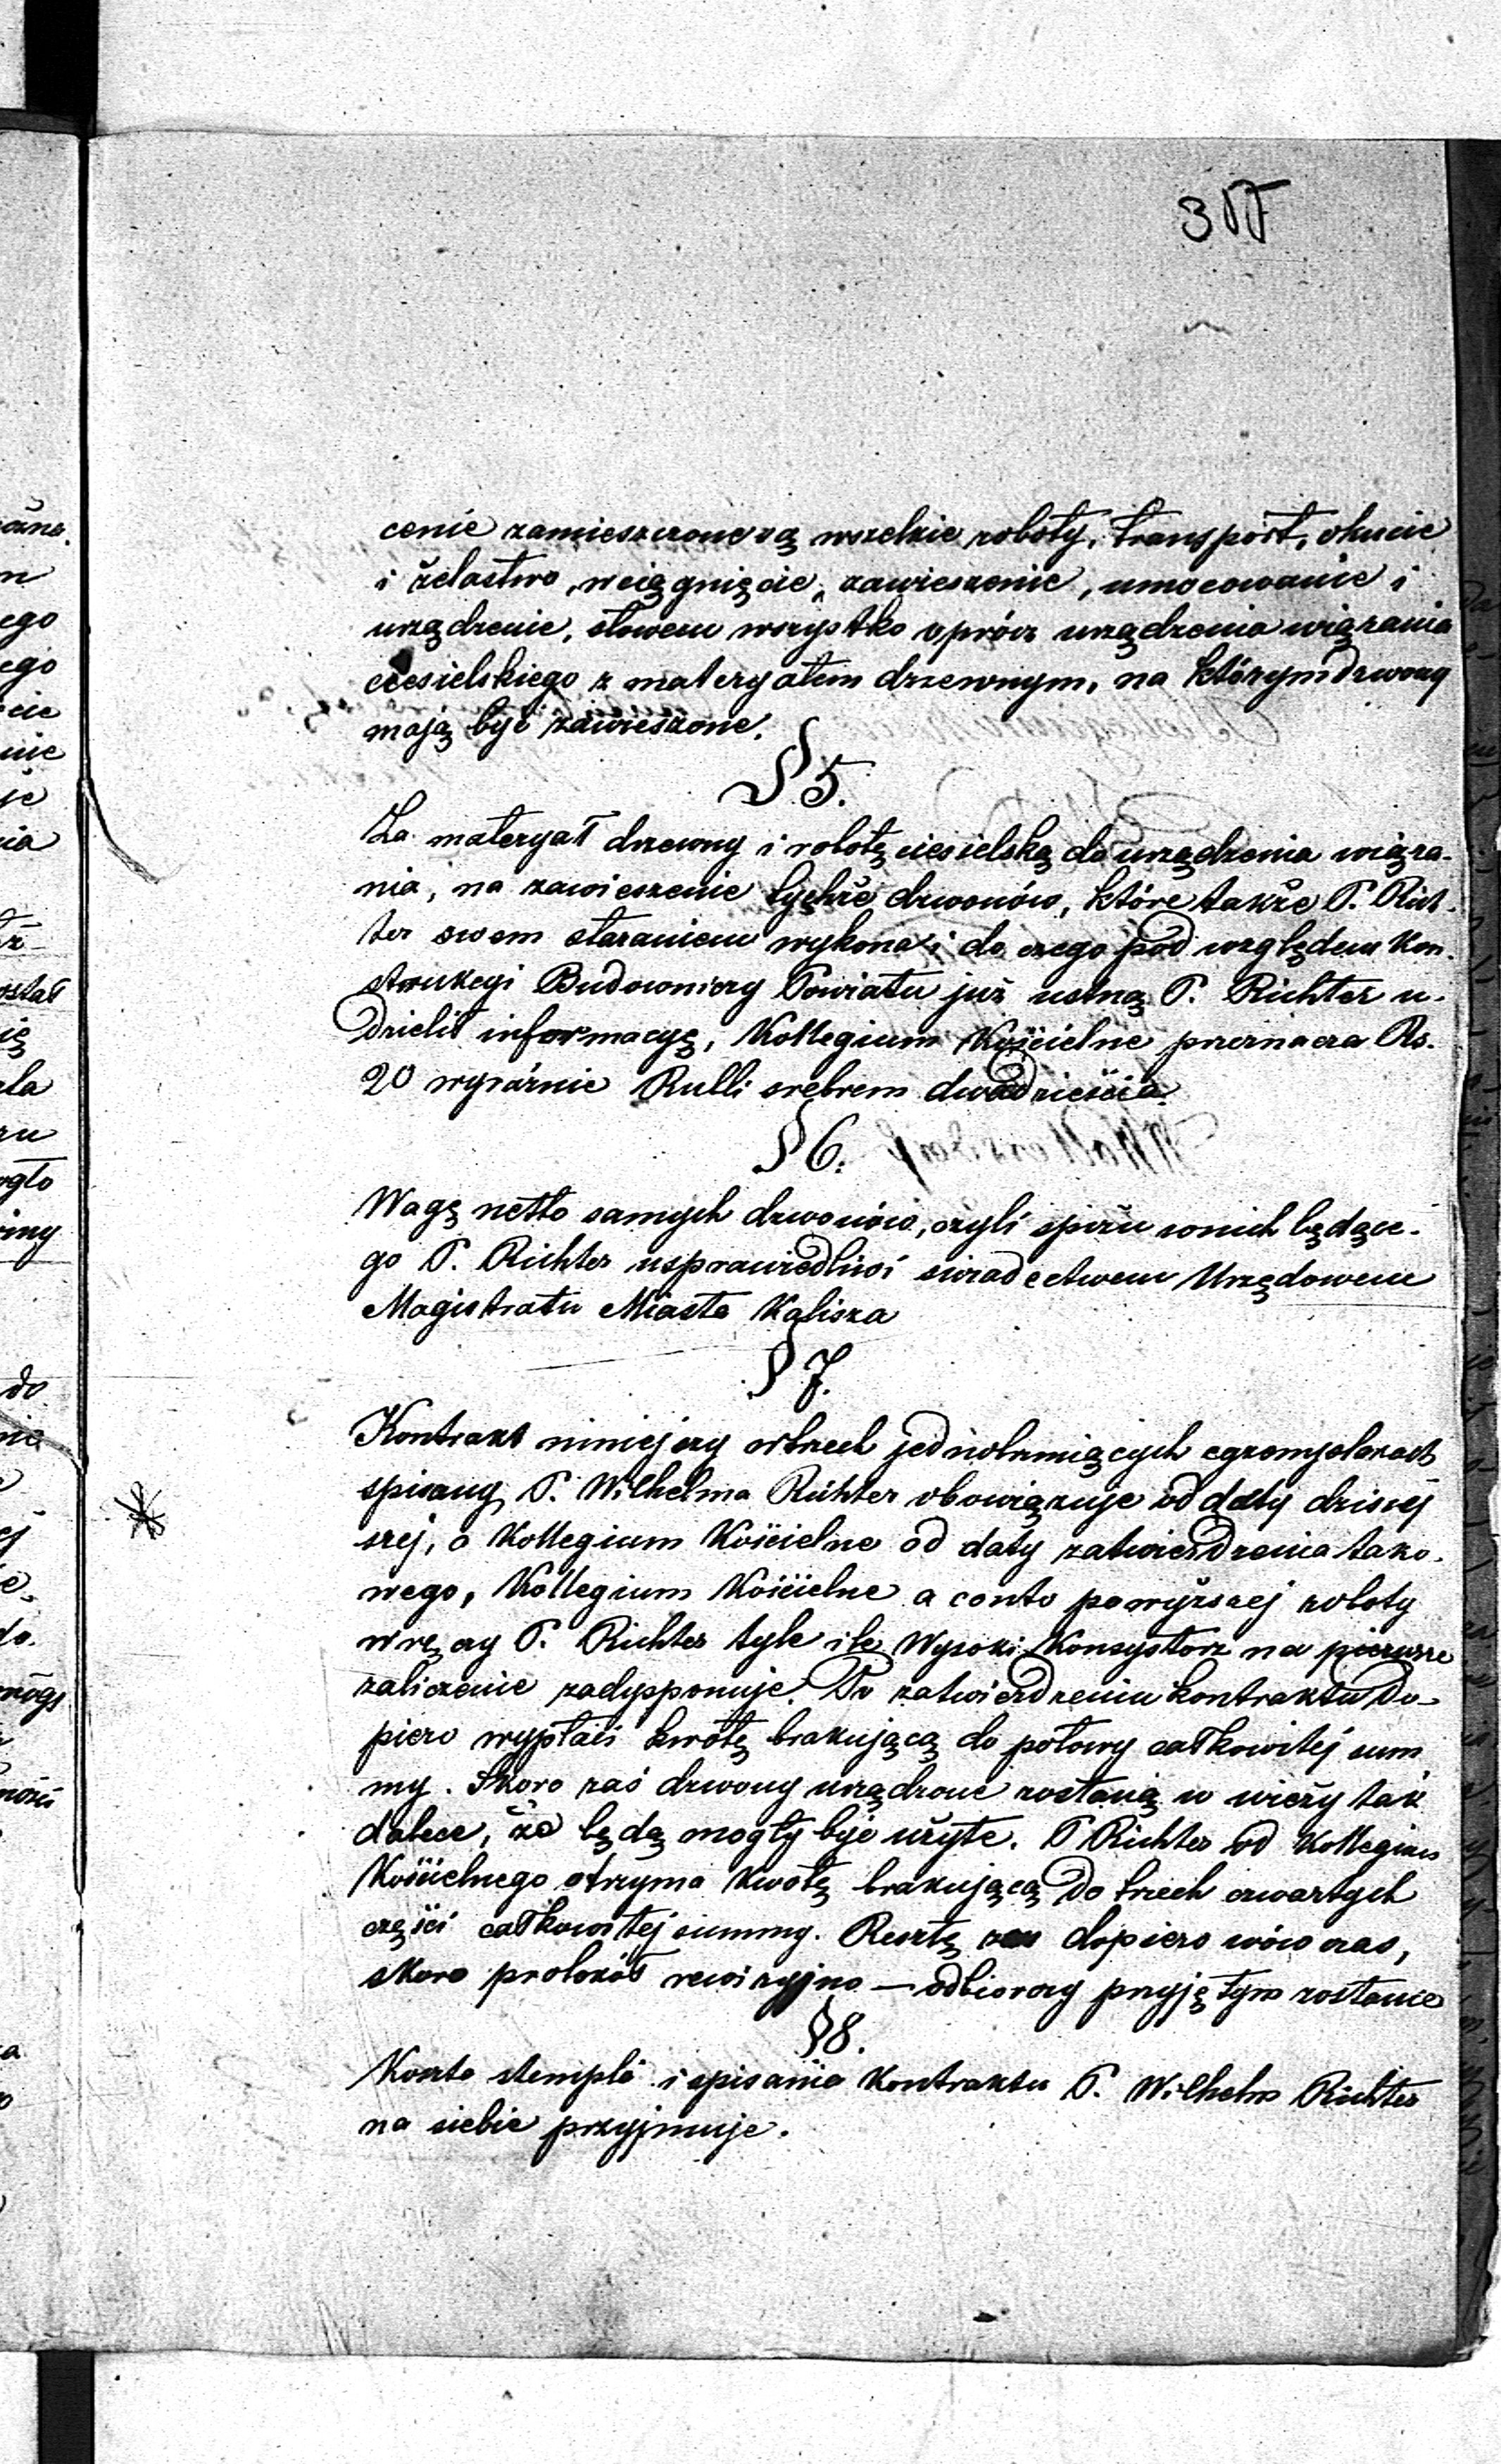 cenie zamieszczone są wszelkie roboty, transport, okucie
i żelastwo, wciągnięcie, zawieszenie, umocowanie i
urządzenie, słowem wszystko oprócz urządzenia wiązania
ciesielskiego z materyałem drzewnym, na którym dzwony
mają być zawieszone.
§ 5.
Za materyał drzewny i robotę ciesielską do urządzenia wiąza-
nia, na zawieszenie tychże dzwonów, które także P. Rich-
ter swem staraniem wykona i do czego pod względem Kon-
strukcyi Budowniczy Powiatu już ustną P. Richter u-
dzielił informacyę, Kollegium Kościelne przeznacza Rs.
20 wyraźnie Rubli srebrem dwadzieścia.
§ 6.
Wagę netto samych dzwonów, czyli spiżu w nich będące-
go P. Richter usprawiedliwi świadectwem Urzędowem
Magistratu Miasta Kalisza
§ 7.
Kontrakt niniejszy w trzech jednobrzmiących egzemplarzach
spisany P. Wilhelma Richter obowiązuje od daty dzisiej
szej, a Kollegium Kościelne od daty zatwierdzenia tako-
wego, Kollegium Kościelne a conto powyższej roboty
wręczy P. Richter tyle ile Wysoki Konsystorz na pierwsze
zaliczenie zadyspponuje. Po zatwierdzeniu kontraktu do-
piero wypłaci kwotę brakującą do połowy całkowitej sum
my. Skoro zaś dzwony urządzone zostaną w wieży tak
dalece, że będą mogły być użyte. P Richter od Kollegium
Kościelnego otrzyma kwotę brakującą do trzech czwartych
części całkowitej summy. Resztę zaś dopiero wówczas,
skoro protokół rewizyjno — odbiorczy przyjętym zostanie
§ 8.
Koszta stempla i spisania Kontraktu P. Wilhelm Richter
na siebie przyjmuje.